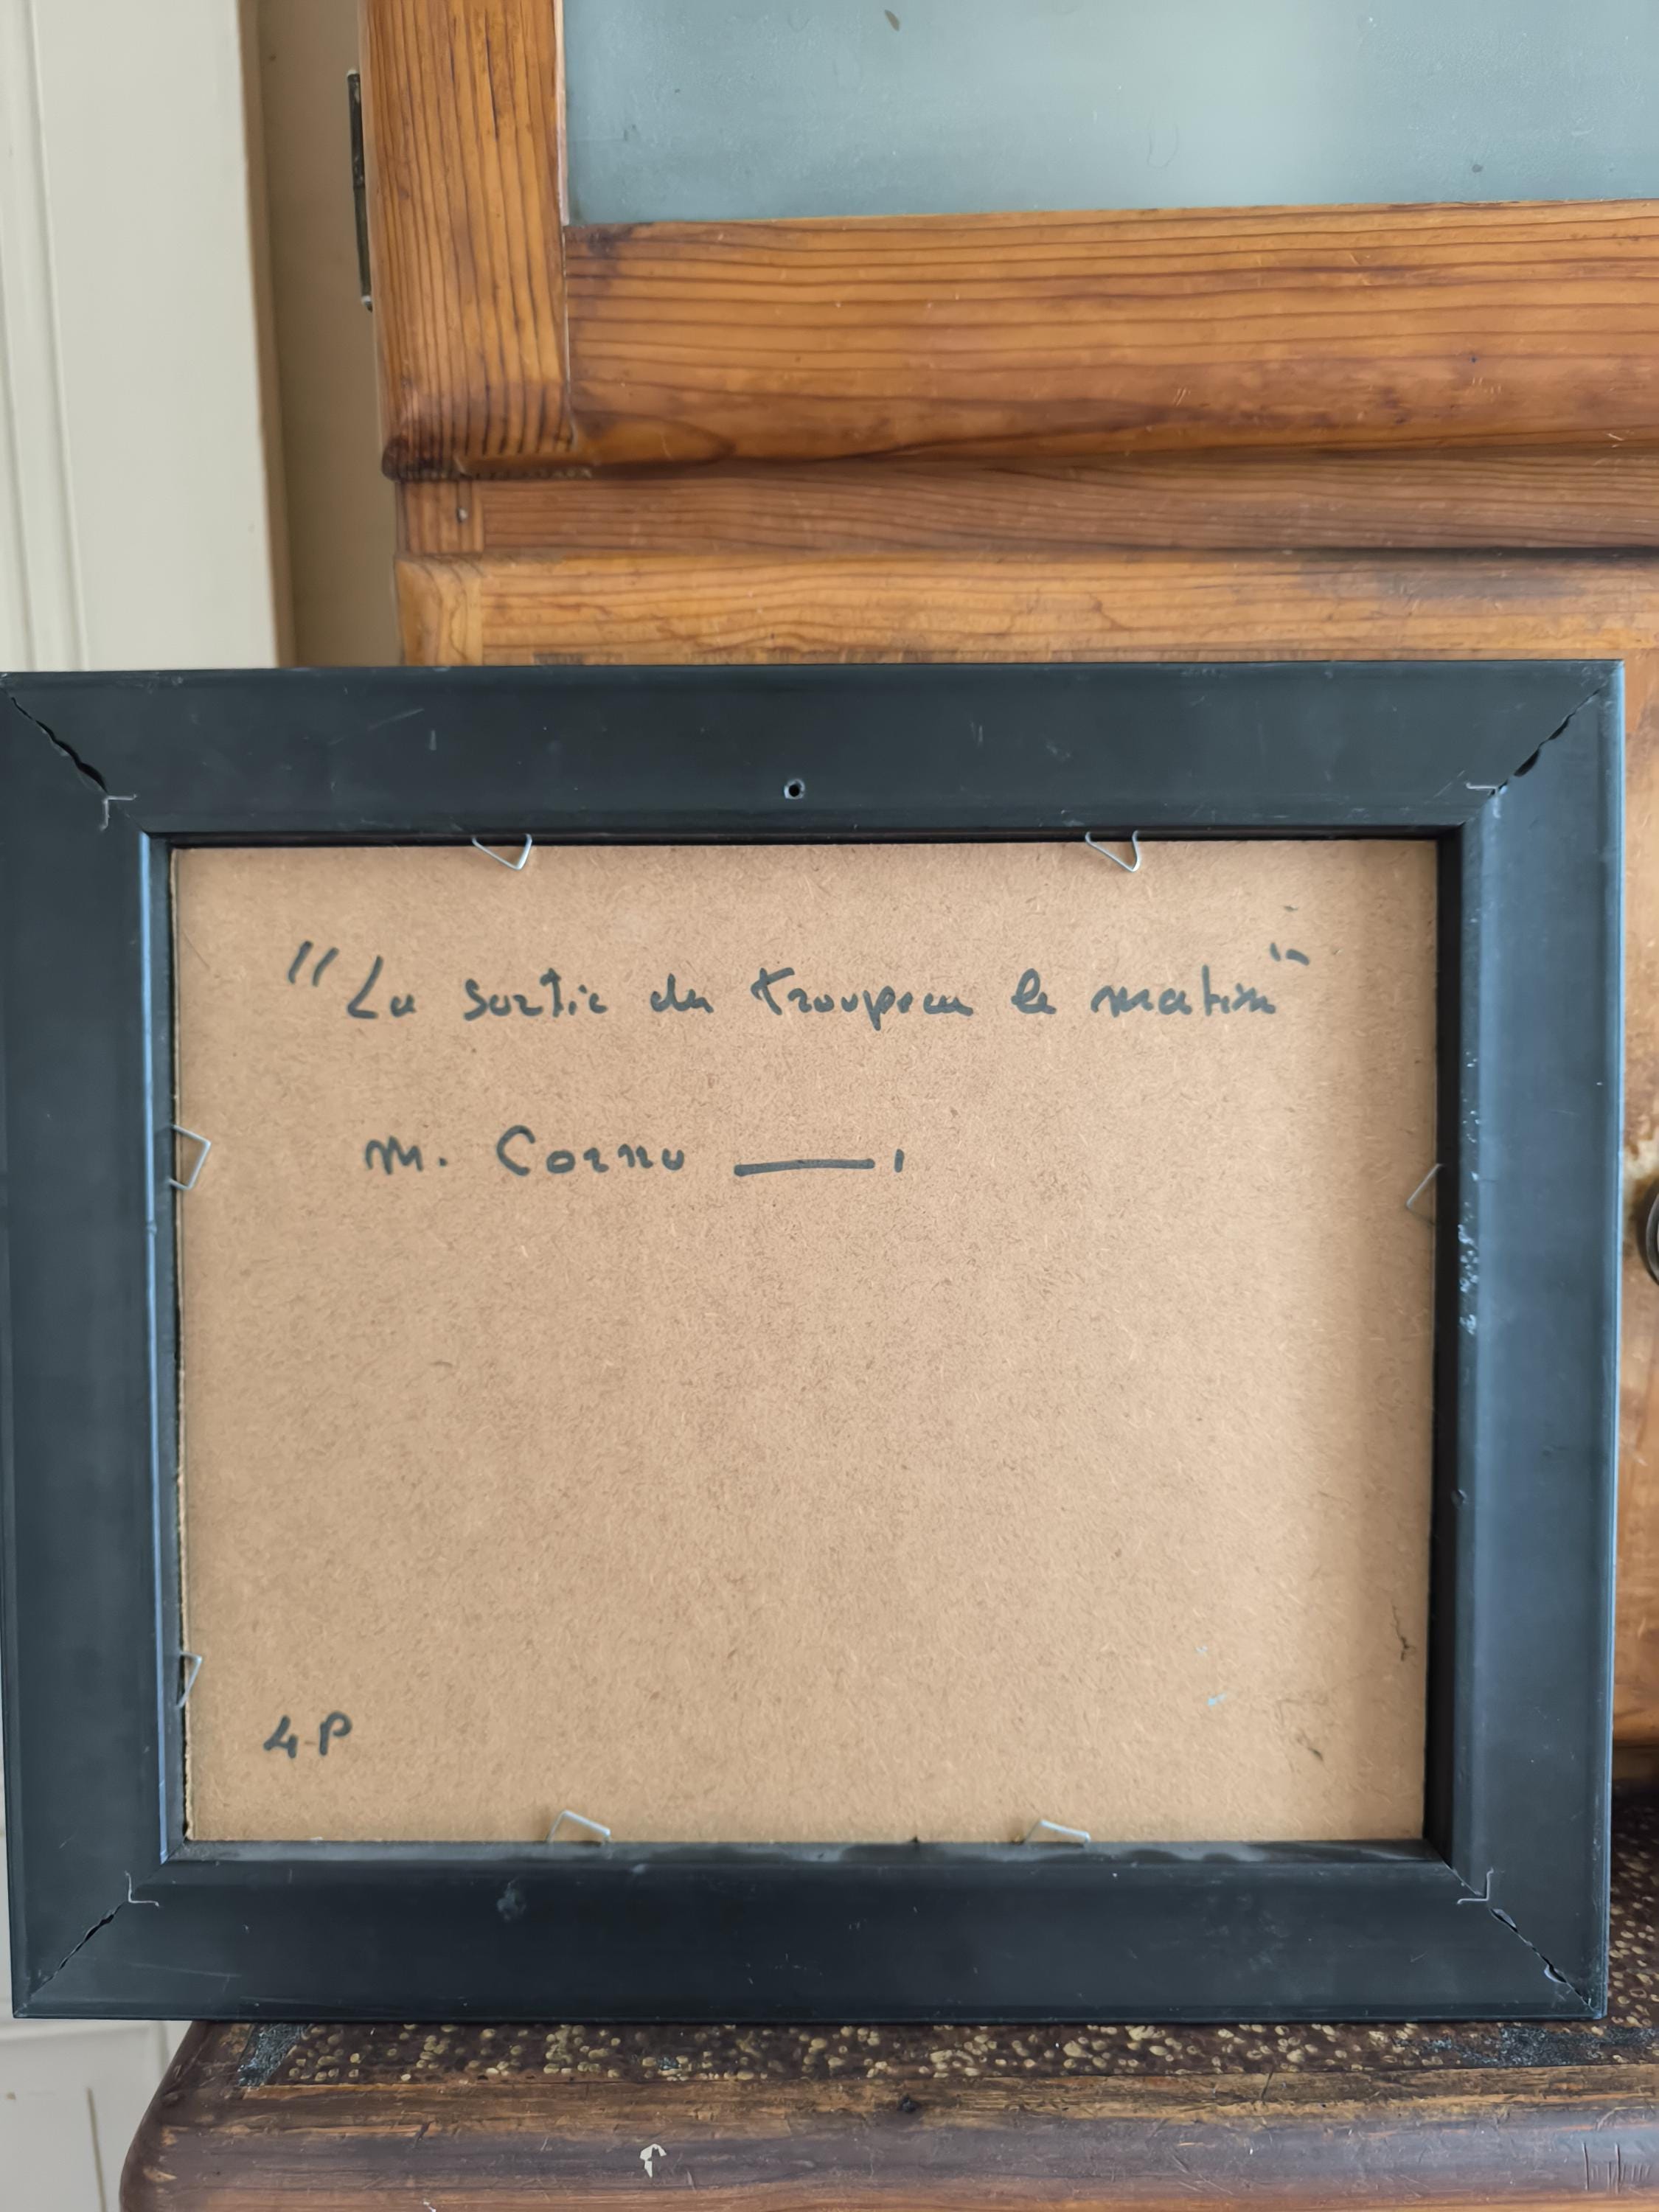 "La sortie du troupeau le matin"
M. Cornu —.
4 P